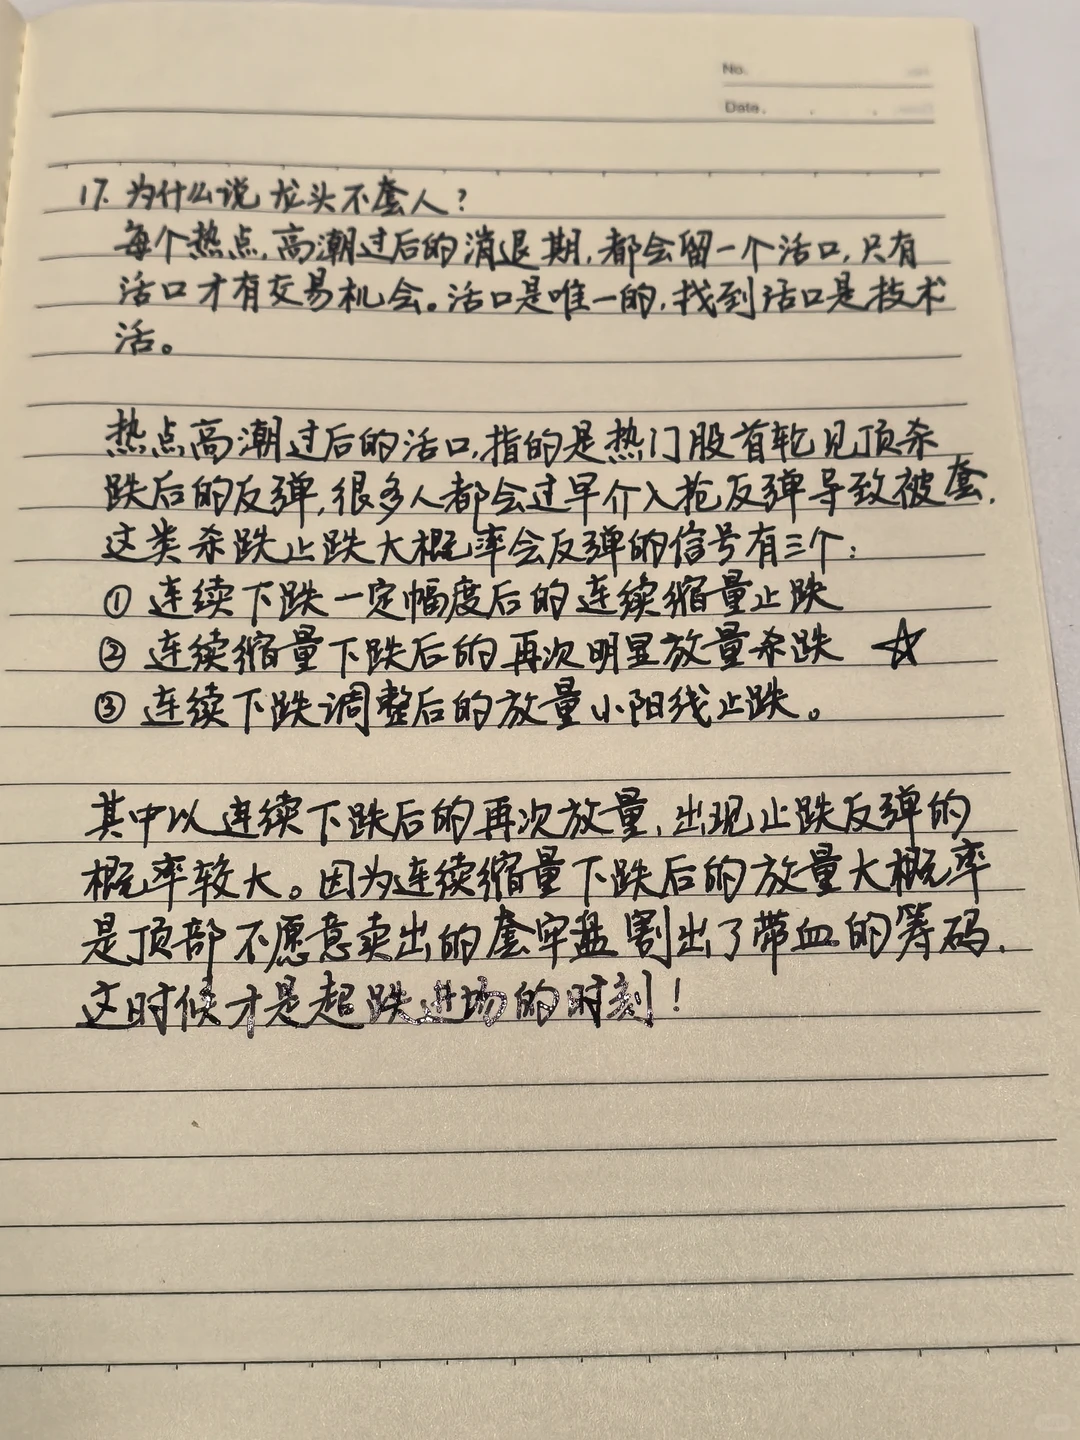 No.
Date.
17. 为什么说龙头不套人?
每个热点,高潮过后的消退期,都会留一个活口,只有
活口才有交易机会。活口是唯一的,找到活口是技术
活。
热点高潮过后的活口,指的是热门股首轮见顶杀
跌后的反弹,很多人都会过早介入抢反弹导致被套,
这类杀跌止跌大概率会反弹的信号有三个:
① 连续下跌一定幅度后的连续缩量止跌
② 连续缩量下跌后的再次明显放量杀跌 ☆
③ 连续下跌调整后的放量小阳线止跌。
其中以连续下跌后的再次放量,出现止跌反弹的
概率较大。因为连续缩量下跌后的放量大概率
是顶部不愿意卖出的套牢盘割出了带血的筹码,
这时候才是超跌进场的时刻!